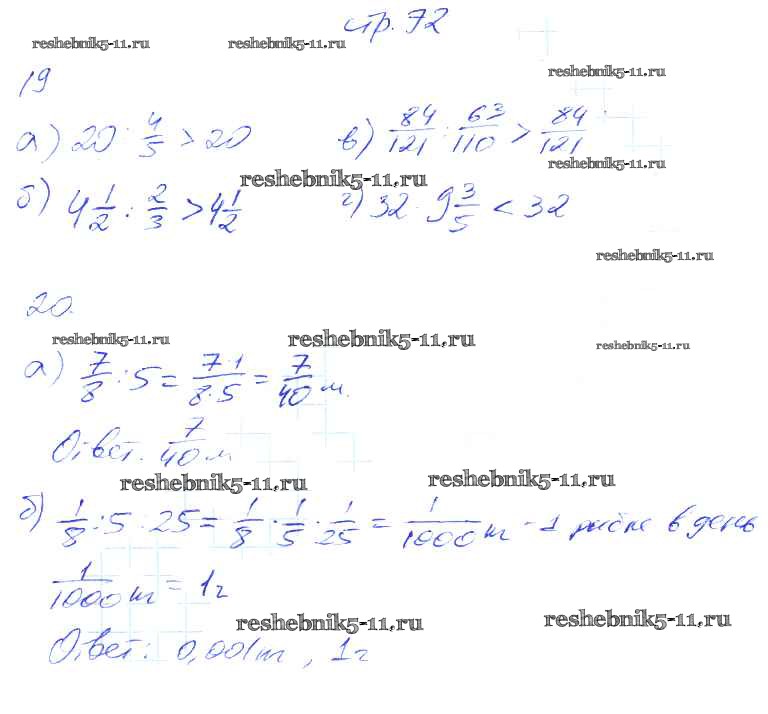 стр. 72
reshebnik5-11.ru reshebnik5-11.ru
reshebnik5-11.ru
19
а) 20 : 4/5 > 20 в) 84/121 : 63/110 > 84/121
reshebnik5-11.ru
reshebnik5-11.ru
б) 4 1/2 : 2/3 > 4 1/2 г) 32 : 9 3/5 < 32
reshebnik5-11.ru
20.
reshebnik5-11.ru reshebnik5-11.ru reshebnik5-11.ru
а) 7/8 : 5 = 7·1/8·5 = 7/40 м.
Ответ. 7/40 м
reshebnik5-11.ru reshebnik5-11.ru
б) 1/8 : 5 : 25 = 1/8 · 1/5 · 1/25 = 1/1000 кг - 1 рыбке в день
1/1000 кг = 1г
reshebnik5-11.ru reshebnik5-11.ru
Ответ: 0,001кг, 1г